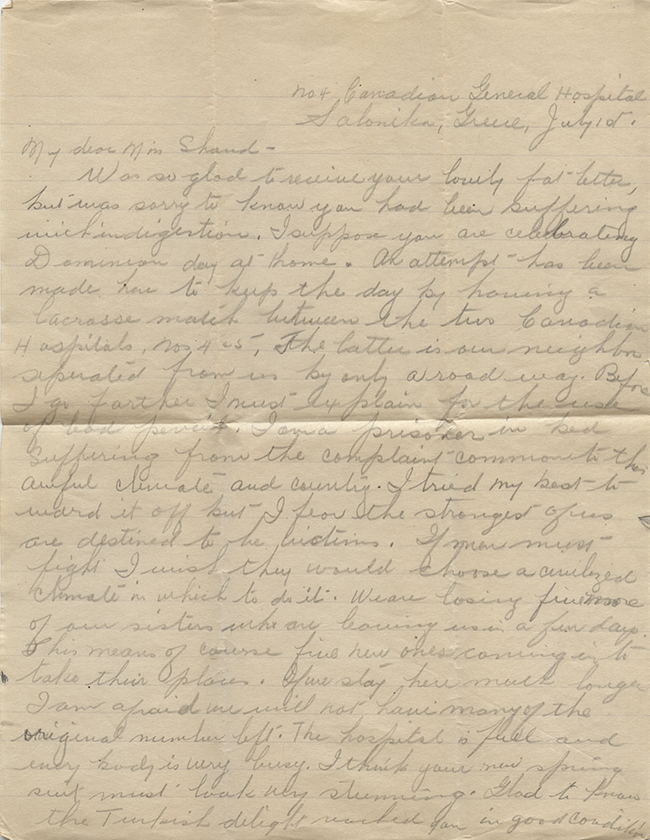 No 4 Canadian General Hospital
Salonika, Greece, July 1st.
My dear Miss Shand -
Was so glad to receive your lovely fat letter,
but was sorry to know you had been suffering
with indigestion. I suppose you are celebrating
Dominion day at home. An attempt has been
made here to keep the day by having a
lacrosse match between the two Canadian
Hospitals, Nos 4 & 5, The latter is our neighbor
seperated from us by only a road way. Before
I go farther I must explain for the use
of bad pencil. I am a prisoner in bed
suffering from the complaint common to this
awful climate and country. I tried my best to
ward it off but I fear the strongest of us
are destined to be victims. If men must
fight I wish they would choose a civilized
climate in which to do it. We are losing five more
of our sisters who are leaving us in a few days.
This means of course five new ones coming in to
take their places. If we stay here much longer
I am afraid we will not have many of the
original number left. The hospital is full and
every body is very busy. I think your new spring
suit must look very stunning. Glad to know
the Turkish delight reached you in good condition